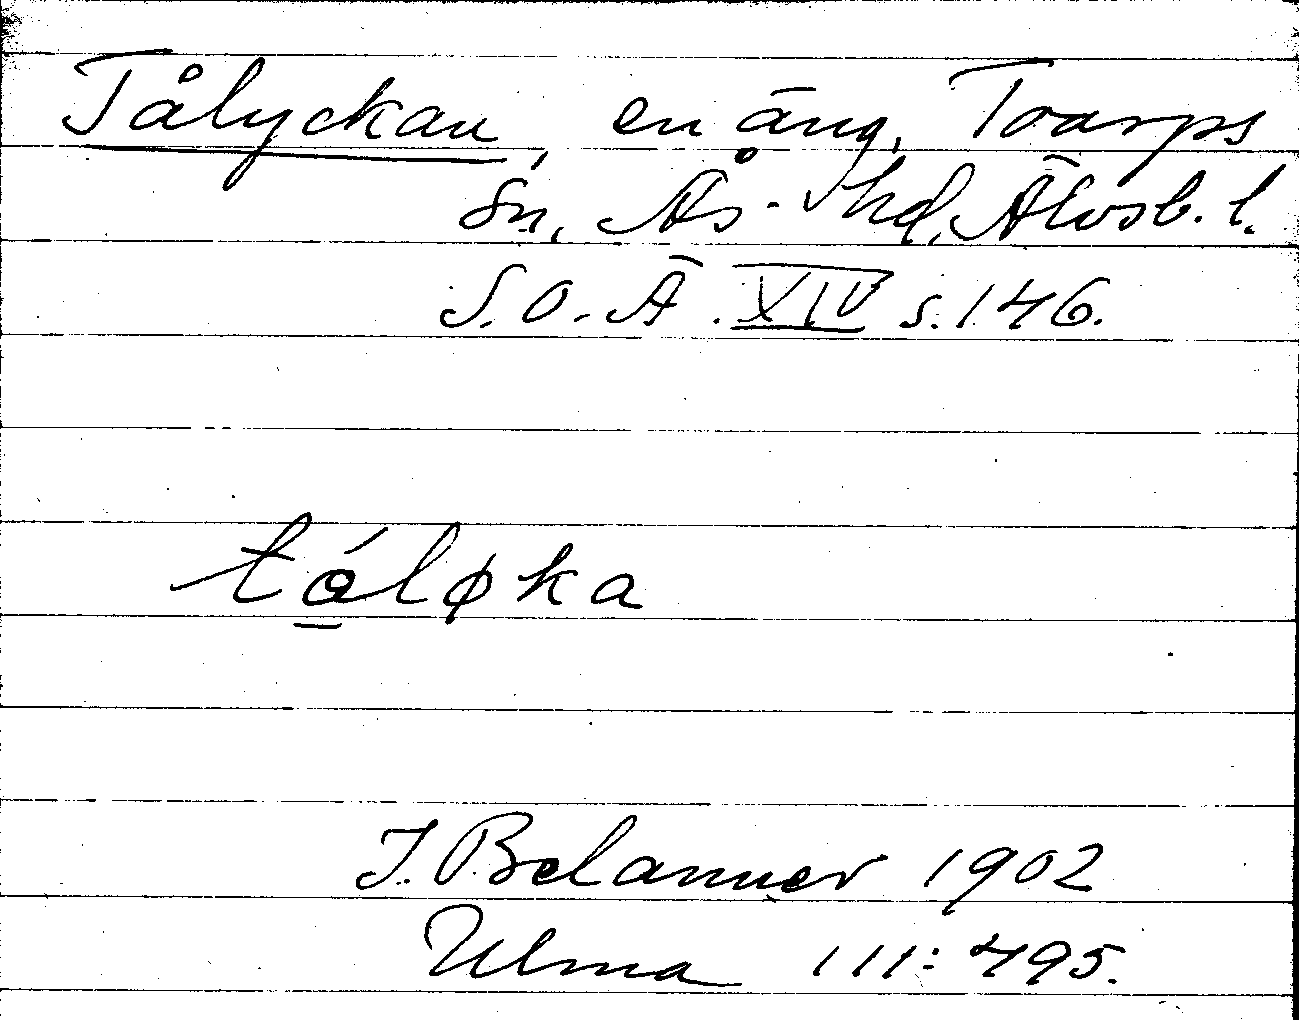 Tålyckan, en äng, Toarps
sn, Ås. hd, Älvsb. l.
S.O.Ä. XIV s. 146.
tólφka
J. Belanner 1902
Ulma 111:495.